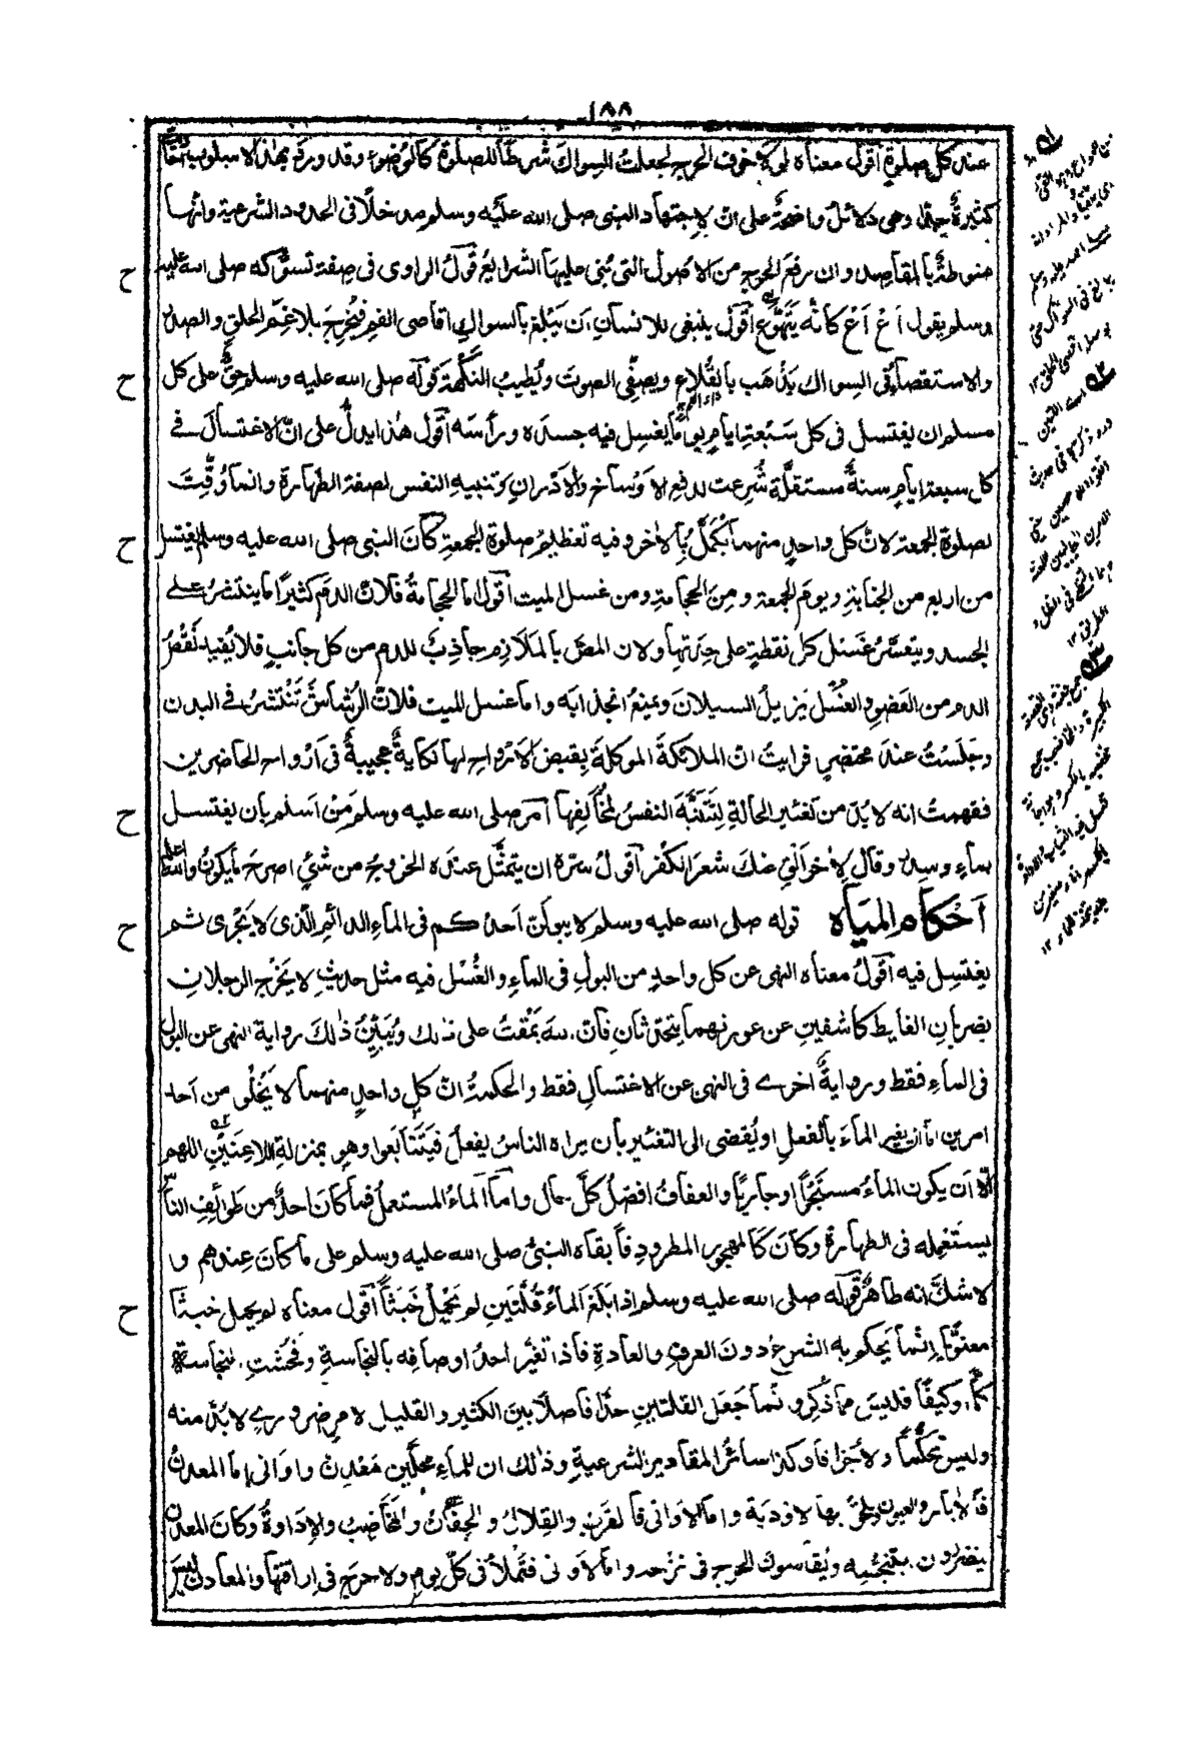 ١٨٨
عند كل صلوة اقول معناه لولا خوف الحرج لجعلت السواك شرطا للصلوة كالوضوء وقد ورد بهذا الاسلوب احاديث
كثيرة جدا وهى دلائل واضحة على ان لاجتهاد النبى صلى الله عليه وسلم مدخلا فى الحدود الشرعية وانها
منوطة بالمقاصد وان رفع الحرج من الاصول التى بنى عليها الشرايع قول الراوى فى صفة تسوكه صلى الله عليه
وسلم يقول اع اع كانه يتهوع اقول ينبغى للانسان ان يبلغ بالسواك اقاصى الفم فيخرج بلاغم الحلق والصدر
والاستقصاء فى السواك يذهب بالقلاع ويصفى الصوت ويطيب النكهة قوله صلى الله عليه وسلم حق على كل
مسلم ان يغتسل فى كل سبعة ايام يوما يغسل فيه جسده وراسه اقول هذا يدل على ان الاغتسال فے
كل سبعة ايام سنة مستقلة شرعت لدفع الاوساخ والادران وتنبيه النفس لصفة الطهارة وانما وقت
لصلوة الجمعة لان كل واحد منهما يكمل بالاخر وفيه تعظيم صلوة الجمعة كان النبى صلى الله عليه وسلم يغتسل
من اربع من الجنابة ويوم الجمعة ومن الحجامة ومن غسل الميت اقول اما الحجامة فلان الدم كثيرا ما ينتشر على
الجسد ويتعسر غسل كل نقطة على حدتها ولان المص بالملازم جاذب للدم من كل جانب فلا يفيد نقص
الدم من العضو والغسل يزيل السيلان ويمنع انجذابه واما غسل الميت فلان الرشاش تنتشر فے البدن
وجلست عند محتضر فرايت ان الملائكة الموكلة بقبض الارواح لها نكاية عجيبة فى ارواح الحاضرين
ففهمت انه لا بد من تغيير الحالة لتتنبه النفس لمخالفها امر صلى الله عليه وسلم من اسلم بان يغتسل
بماء وسدر وقال لاخر الق عنك شعر الكفر اقول سره ان يتمثل عنده الخروج من شئ اصرح ما يكون والله اعلم
احكام المياه قوله صلى الله عليه وسلم لا يبولن احدكم فى الماء الدائم الذى لا يجرى ثم
يغتسل فيه اقول معناه النهى عن كل واحد من البول فى الماء والغسل فيه مثل حديث لا يخرج الرجلان
يضربان الغايط كاشفين عن عورتهما يتحدثان فان الله يمقت على ذلك ويبين ذلك رواية النهى عن البول
فى الماء فقط ورواية اخرے فى النهى عن الاغتسال فقط والحكمة ان كل واحد منهما لا يخلو من احد
امرين اما ان يغير الماء بالفعل او يفضى الى التغيير بان يراه الناس يفعل فيتتابعوا وهو بمنزلة اللاعنين اللهم
الا ان يكون الماء مستبحرا او جاريا والعفاف افضل كل حال واما الماء المستعمل فما كان احد من طوائف الناس
يستعمله فى الطهارة وكان كالمهجور المطرود فابقاه النبى صلى الله عليه وسلم على ما كان عندهم و
لا شك انه طاهر قوله صلى الله عليه وسلم اذا بلغ الماء قلتين لم يحمل خبثا اقول معناه لم يحمل خبثا
معنويا انما يحكم به الشرع دون العرف والعادة فاذا تغير احد اوصافه بالنجاسة وفحشت النجاسة
كما وكيفا فليس مما ذكر وانما جعل القلتين حدا فاصلا بين الكثير والقليل لامر ضرورے لا بد منه
وليس تحكما ولا جزافا وكذا سائر المقادير الشرعية وذلك ان للماء محلين معدن واوانى اما المعدن
فالابار والعيون ويلحق بها الاودية واما الاوانى فالقرب والقلال والجفان والمخاضب والاداوة وكان المعدن
يتضررون بتنجسه ويقاسون الحرج فى نزحه واما الاوانى فتملأ فى كل يوم ولا حرج فى اراقتها والمعادن ليس
ح
ح
ح
ح
ح
ح